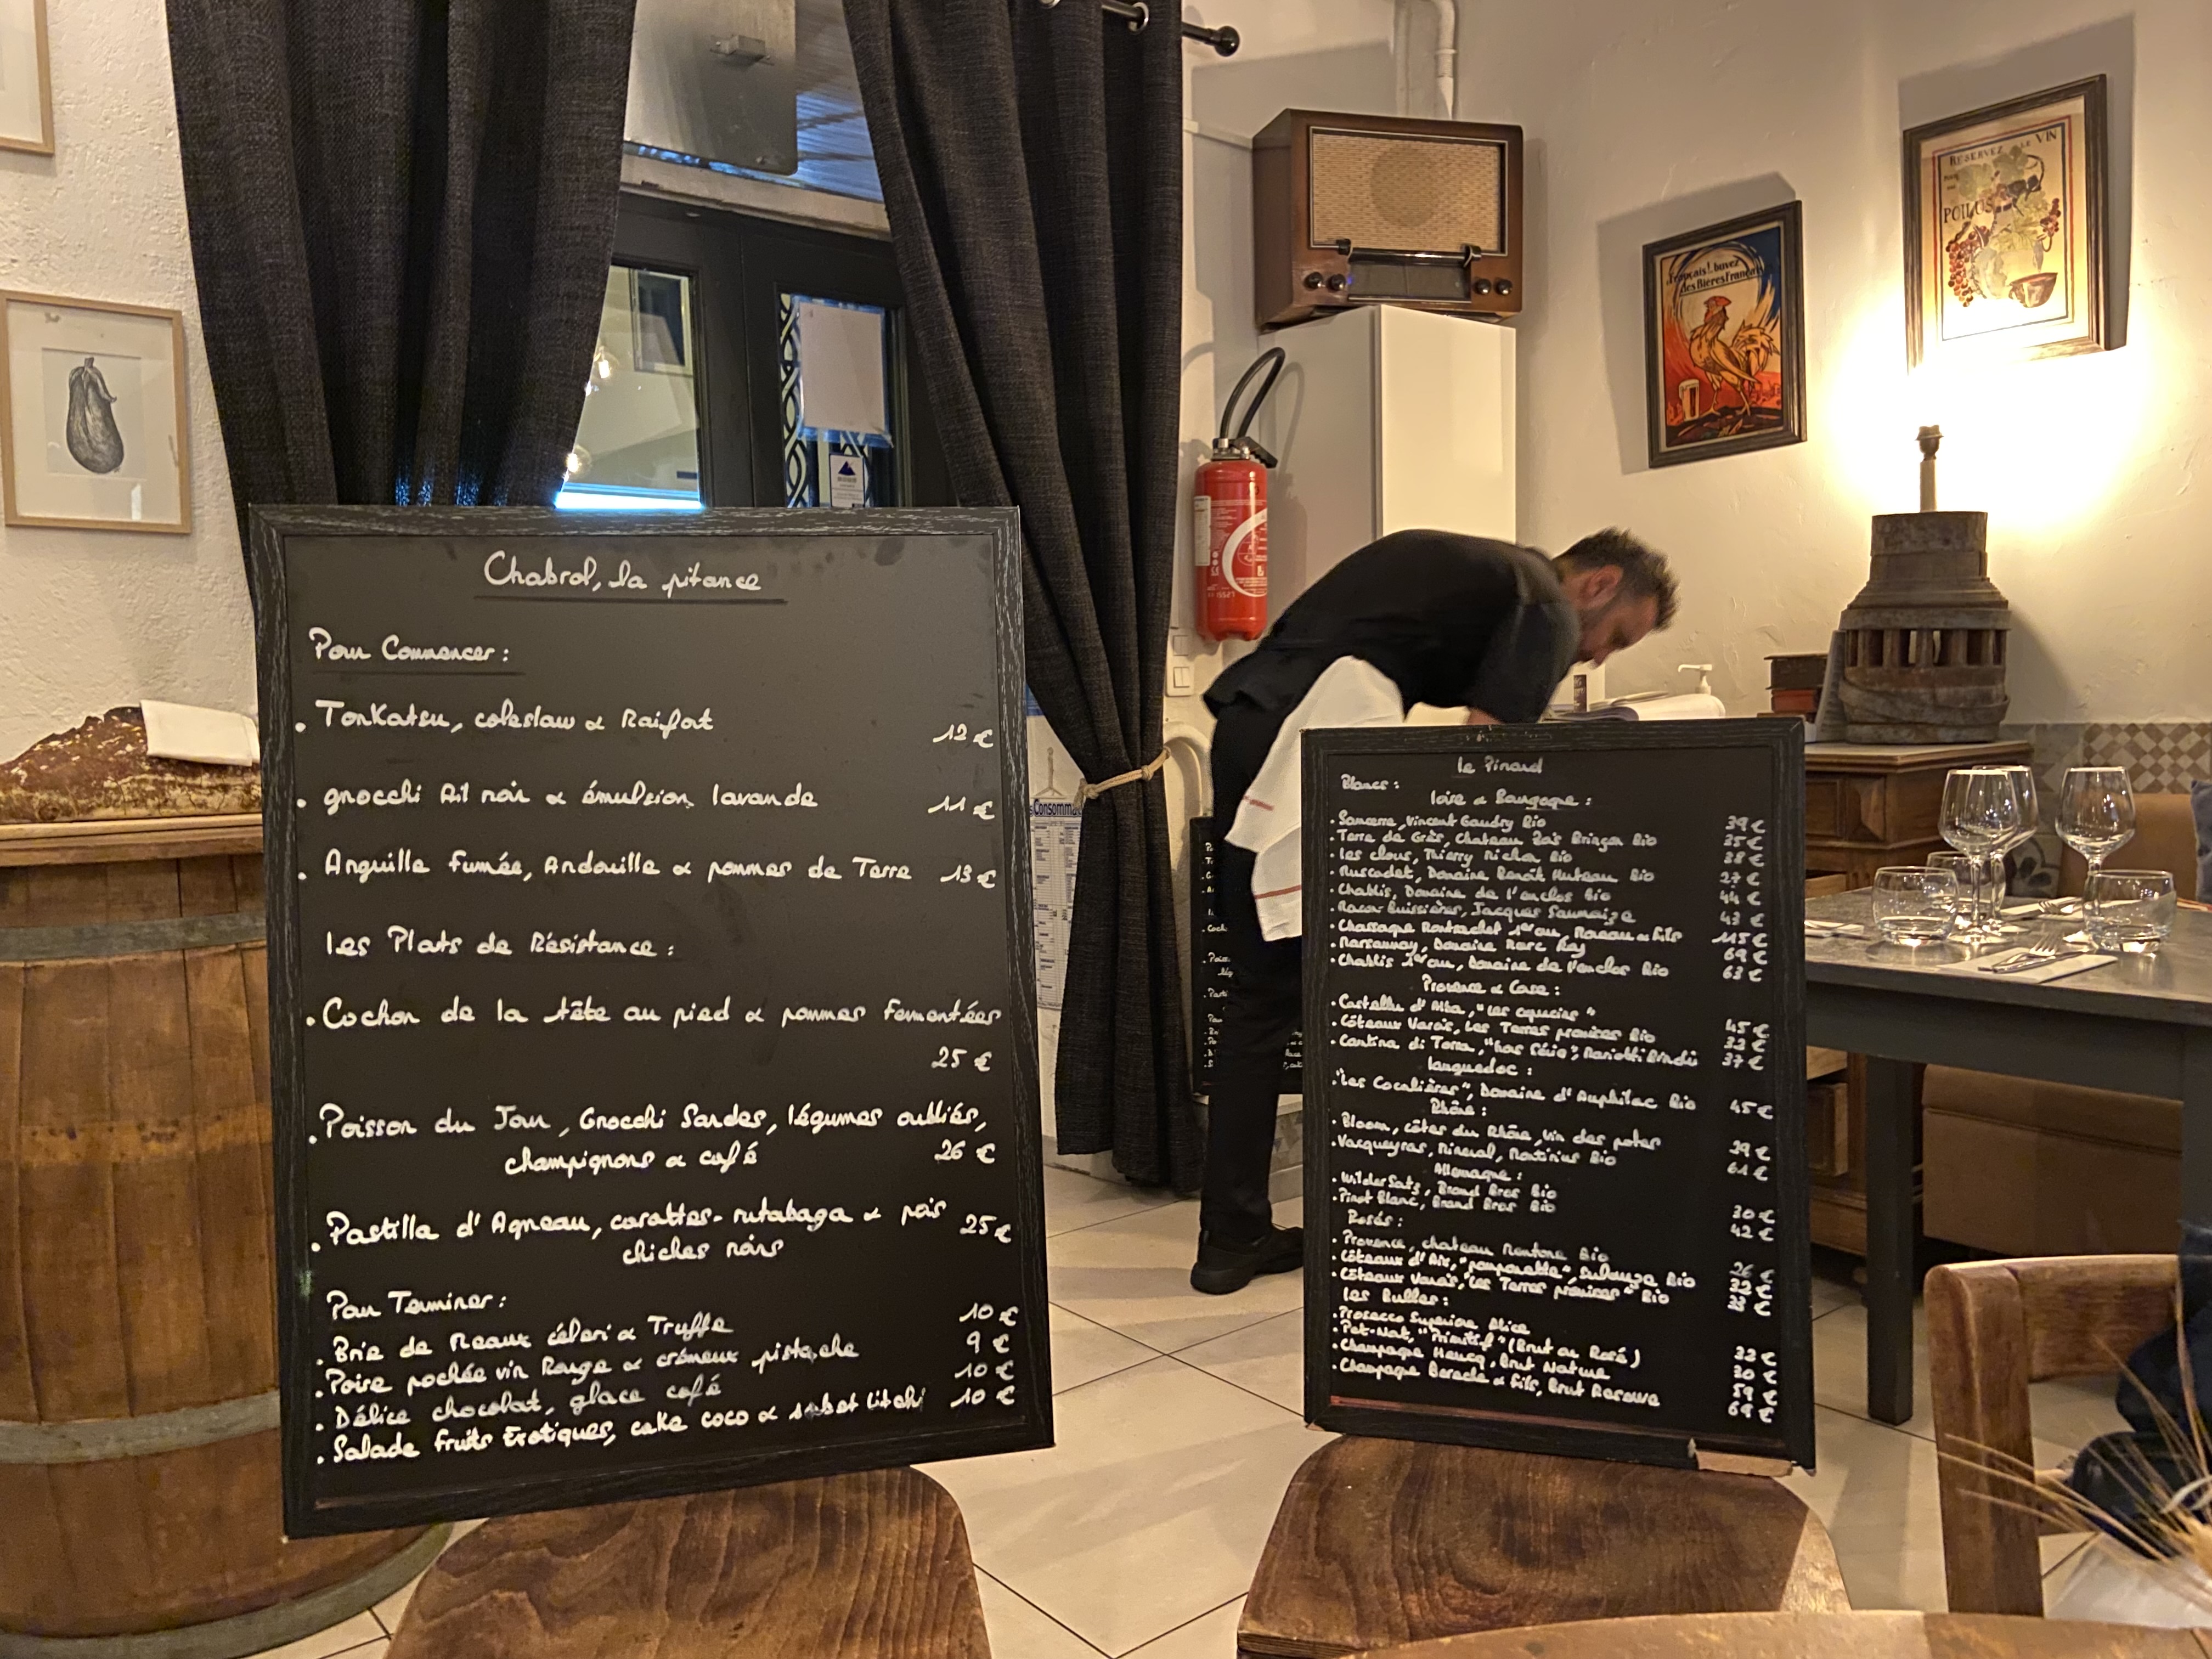 Chabrol, la pitance
Pour Commencer :
. Tonkatsu, coleslaw & Raifort 12 €
. gnocchi Ail noir & émulsion lavande 11 €
. Anguille fumée, Andouille & pommes de Terre 13 €
Les Plats de Résistance :
. Cochon de la tête au pied & pommes fermentées
25 €
. Poisson du Jour, Gnocchi Sardes, légumes oubliés,
champignons & café 26 €
. Pastilla d'Agneau, carottes-rutabaga & pois 25 €
chiches noirs
Pour Terminer :
. Brie de Meaux céleri & Truffe 10 €
. Poire pochée vin Rouge & crémeux pistache 9 €
. Délice chocolat, glace café 10 €
. Salade fruits Exotiques, cake coco & sorbet litchi 10 €
Le Pinard
Blancs :
Loire & Bourgogne :
. Sancerre, Vincent Gaudry Bio 39 €
. Terre de Grès, Chateau Bois Brinçon Bio 35 €
. Les clous, Thierry Richou Bio 38 €
. Muscadet, Domaine Benoît Huteau Bio 27 €
. Chablis, Domaine de l'enclos Bio 44 €
. Macon Buissières, Jacques Saumaize 43 €
. Chassagne Montrachet 1er cru, Moreau & fils 115 €
. Marsannay, Domaine Marc Roy 69 €
. Chablis 1er cru, Domaine de l'enclos Bio 63 €
Provence & Corse :
. Castellu d'Alba, 45 €
. Côteaux Varois, Les Terres promises Bio 32 €
. Cantina di Torra, "hors Série", Mariotti Bindi 37 €
Languedoc :
. "Les Cocalières", Domaine d'Aupilhac Bio 45 €
Rhône :
. Bloom, côtes du Rhône, vin des potes 29 €
. Vacqueyras, Minéral, Montirius Bio 61 €
Allemagne :
. Wilder Satz, Brand Bros Bio 30 €
. Pinot Blanc, Brand Bros Bio 42 €
Rosés :
. Provence, chateau Rentone Bio 26 €
. Côteaux d'Aix, "pomponette", Sulauze Bio 32 €
. Côteaux Varois, "Les Terres promises" Bio 33 €
Les Bulles :
. Prosecco Superiore Alice 32 €
. Pet-Nat, "Primitif" (Brut ou Rosé) 30 €
. Champagne Heucq, Brut Nature 59 €
. Champagne & fils, Brut Reserve 69 €
Français ! buvez
des Bières Françaises
RESERVEZ LE VIN
POUR NOS
POILUS
Consomma